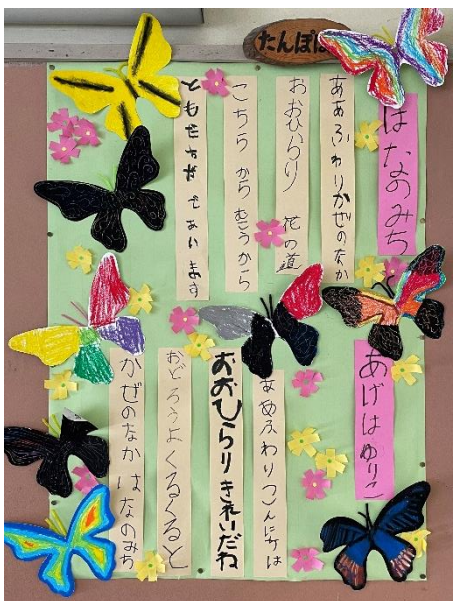 たんぽぽ
はなのみち
あげはゆりこ
ああふわりかぜのなか
おおひらり 花の道
こちら から むこうから
ともだちが であいます
ああふわりこんにちは
おおひらりきれいだね
おどろうよくるくると
かぜのなか はなのみち